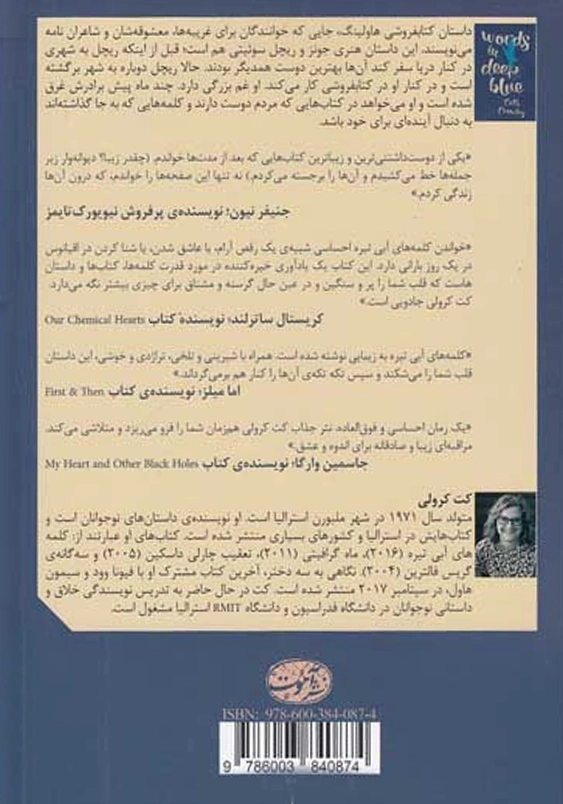 words
in
deep
blue
داستان کتابفروشی هاولینگ، جایی که خوانندگان برای غریبه‌ها، معشوقه‌شان و شاعران نامه
می‌نویسند. این داستان هنری جونز و ریچل سوئیتی هم است؛ قبل از اینکه ریچل به شهری
در کنار دریا سفر کند آن‌ها بهترین دوست همدیگر بودند. حالا ریچل دوباره به شهر برگشته
است و در کنار او در کتابفروشی کار می‌کند. او غم بزرگی دارد. چند ماه پیش برادرش غرق
شده است و او می‌خواهد در کتاب‌هایی که مردم دوست دارند و کلمه‌هایی که به جا گذاشته‌اند
به دنبال آینده‌ای برای خود باشد.
«یکی از دوست‌داشتنی‌ترین و زیباترین کتاب‌هایی که بعد از مدت‌ها خواندم. (چقدر زیبا؟ دیوانه‌وار زیر
جمله‌ها خط می‌کشیدم و آن‌ها را برجسته می‌کردم.) نه تنها این صفحه‌ها را خواندم، که درون آن‌ها
زندگی کردم.»
جنیفر نیون؛ نویسنده‌ی پرفروش نیویورک‌تایمز
«خواندن کلمه‌های آبی تیره احساسی شبیه‌ی یک رقص آرام، یا عاشق شدن، یا شنا کردن در اقیانوس
در یک روز بارانی دارد. این کتاب یک یادآوری خیره‌کننده در مورد قدرت کلمه‌ها، کتاب‌ها و داستان
هاست که قلب شما را پر و سنگین و در عین حال گرسنه و مشتاق برای چیزی بیشتر نگه می‌دارد.
کت کرولی جادویی است.»
کریستال ساترلند؛ نویسندهٔ کتاب Our Chemical Hearts
«کلمه‌های آبی تیره به زیبایی نوشته شده است. همراه با شیرینی و تلخی، تراژدی و خوشی، این داستان
قلب شما را می‌شکند و سپس تکه تکه‌ی آن‌ها را کنار هم برمی‌گرداند.»
اما میلز؛ نویسنده‌ی کتاب First & Then
«یک رمان احساسی و فوق‌العاده، نثر جذاب کت کرولی هم‌زمان شما را فرو می‌ریزد و متلاشی می‌کند.
مراقبه‌ای زیبا و صادقانه برای اندوه و عشق.»
جاسمین وارگا؛ نویسنده‌ی کتاب My Heart and Other Black Holes
کت کرولی
متولد سال ۱۹۷۱ در شهر ملبورن استرالیا است. او نویسنده‌ی داستان‌های نوجوانان است و
کتاب‌هایش در استرالیا و کشورهای بسیاری منتشر شده است. کتاب‌های او عبارتند از: کلمه
های آبی تیره (۲۰۱۶)، ماه گرافیتی (۲۰۱۱)، تعقیب چارلی داسکین (۲۰۰۵) و سه‌گانه‌ی
گریس فالترین (۲۰۰۴). نگاهی به سه دختر، آخرین کتاب مشترک او با فیونا وود و سیمون
هاول، در سپتامبر ۲۰۱۷ منتشر شده است. کت در حال حاضر به تدریس نویسندگی خلاق و
داستانی نوجوانان در دانشگاه فدراسیون و دانشگاه RMIT استرالیا مشغول است.
نشر آموت
ISBN: 978-600-384-087-4
9 786003 840874